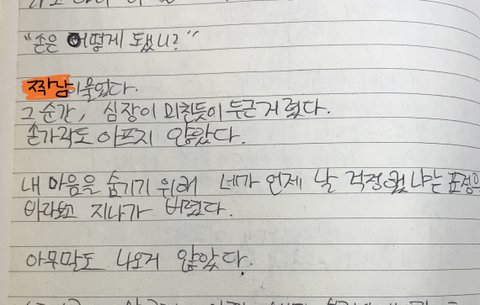 "손은 어떻게 됐니?"
짝남이 물었다.
그 순간, 심장이 미친듯이 두근거렸다.
손가락도 아프지 않았다.
내 마음을 숨기기 위해 네가 언제 날 걱정했냐는 표정을
바라보고 지나가 버렸다.
아무말도 나오지 않았다.